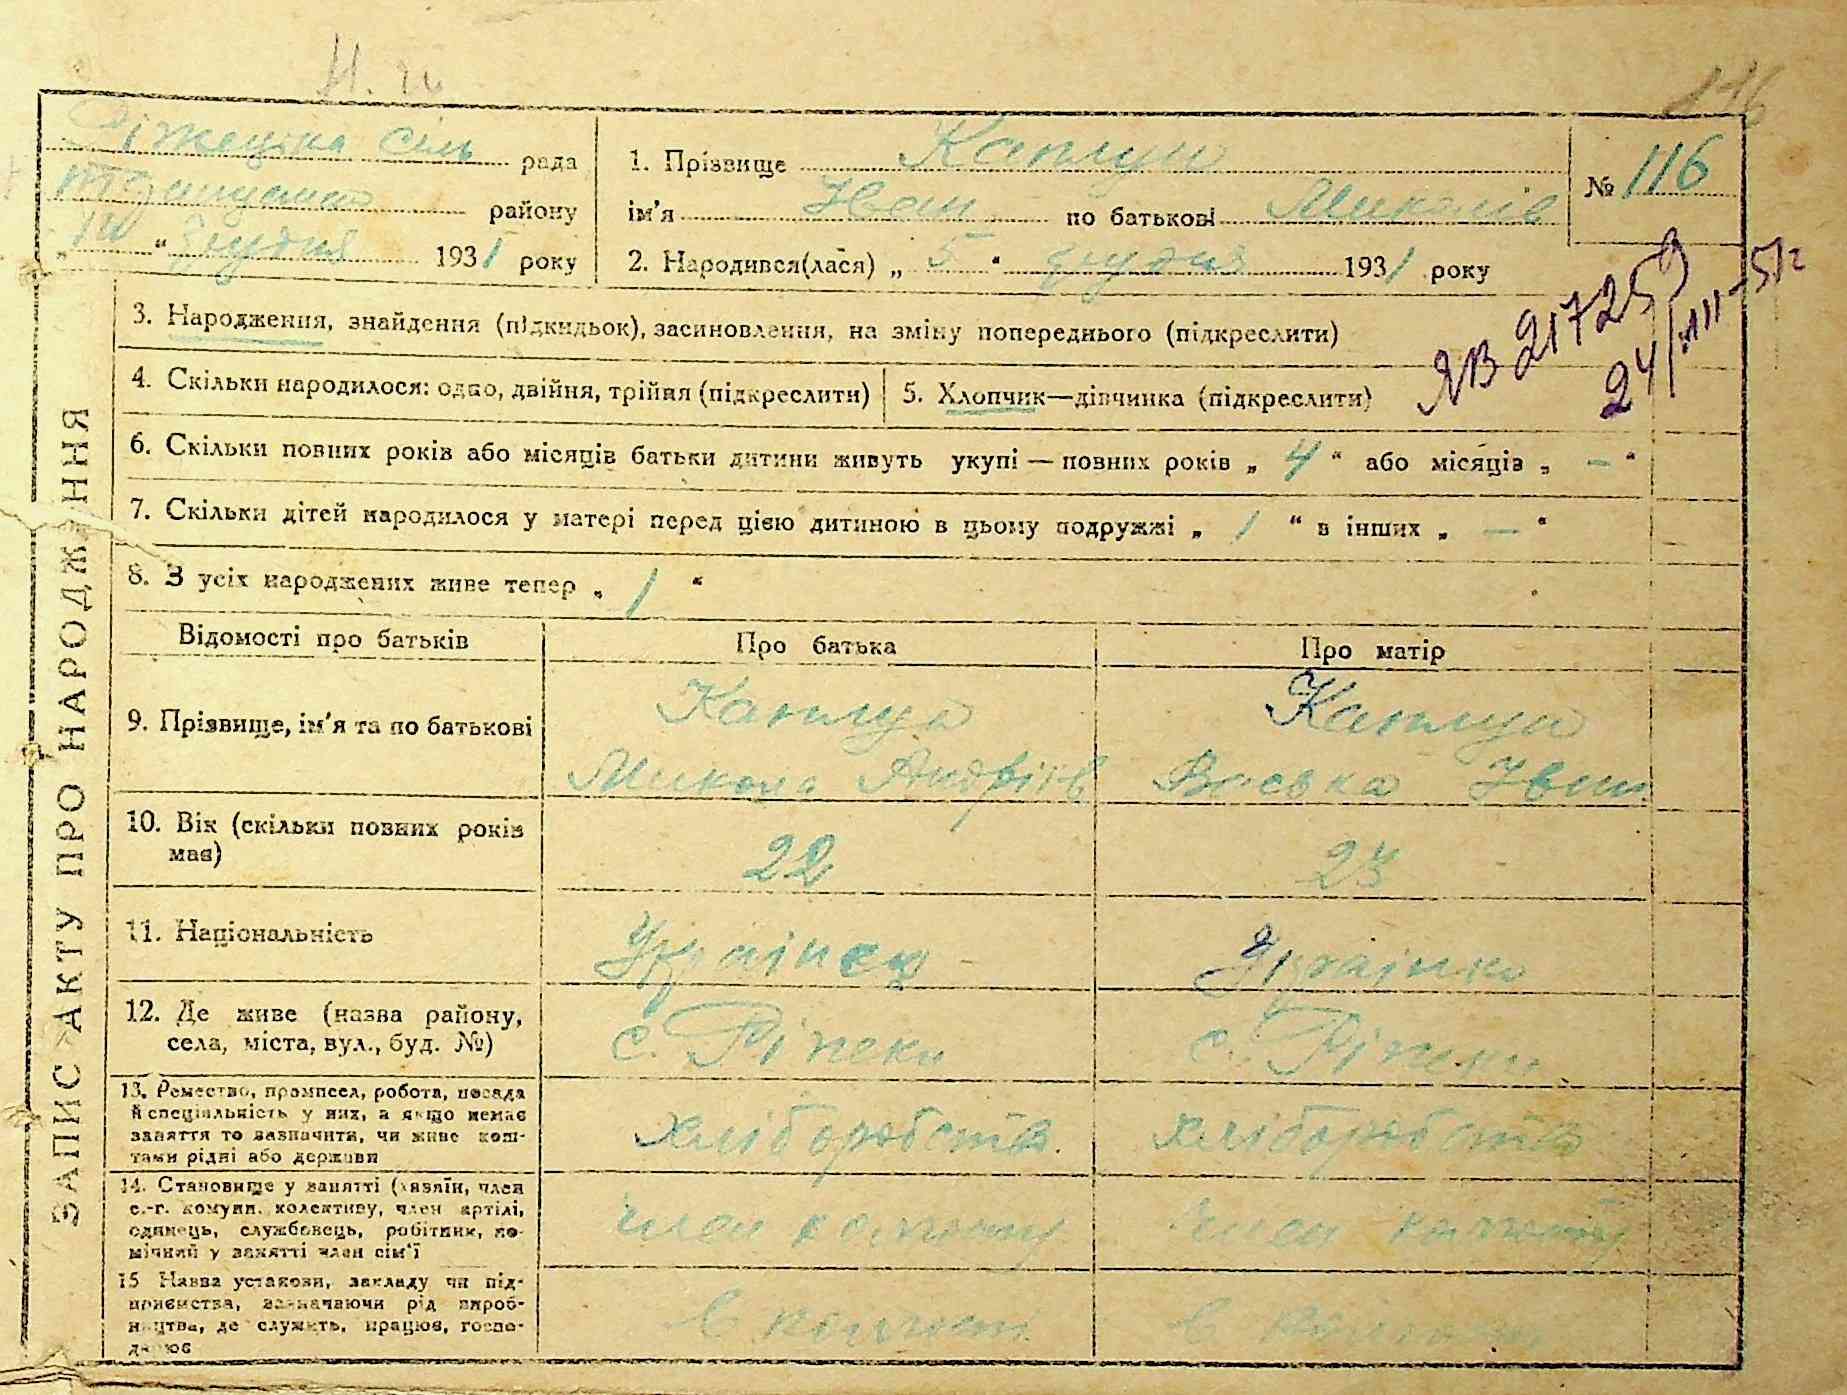 116
Ріжецька сіль рада
району
"10" грудня 1931 року
1. Прізвище Каплун
ім'я Іван по батькові Миколів
№ 116
2. Народився(лася) „ 5 " грудня 1931 року
3. Народження, знайдення (підкидьок), засиновлення, на зміну попереднього (підкреслити)
ЯВ 217259
24/III-51г
4. Скільки народилося: одно, двійня, трійня (підкреслити)
5. Хлопчик—дівчинка (підкреслити)
6. Скільки повних років або місяців батьки дитини живуть укупі — повних років „ 4 " або місяців „ — "
7. Скільки дітей народилося у матері перед цією дитиною в цьому подружжі „ 1 " в інших „ — "
8. З усіх народжених живе тепер „ 1 "
Відомості про батьків
Про батька
Про матір
9. Прізвище, ім'я та по батькові
Каплун
Микола Андріїв
Каплун
Васька Іван
10. Вік (скільки повних років
має)
22
23
11. Національність
Українец
Українка
12. Де живе (назва району,
села, міста, вул., буд. №)
с. Ріжеки
с. Ріжеки
13. Ремество, промисел, робота, посада
й спеціальність у них, а якщо немає
заняття то зазначити, чи живе кош-
тами рідні або держави
хліборобств
хліборобств
14. Становище у занятті (хазяїн, член
с.-г. комуни, колективу, член артілі,
одинець, службовець, робітник, по-
мічний у занятті член сім'ї
член колгоспу
член колгоспу
15 Назва установи, закладу чи під-
приємства, зазначаючи рід вироб-
ництва, де служить, працює, госпо-
дарює
в колгоспі
в колгоспі
ЗАПИС АКТУ ПРО НАРОДЖЕННЯ